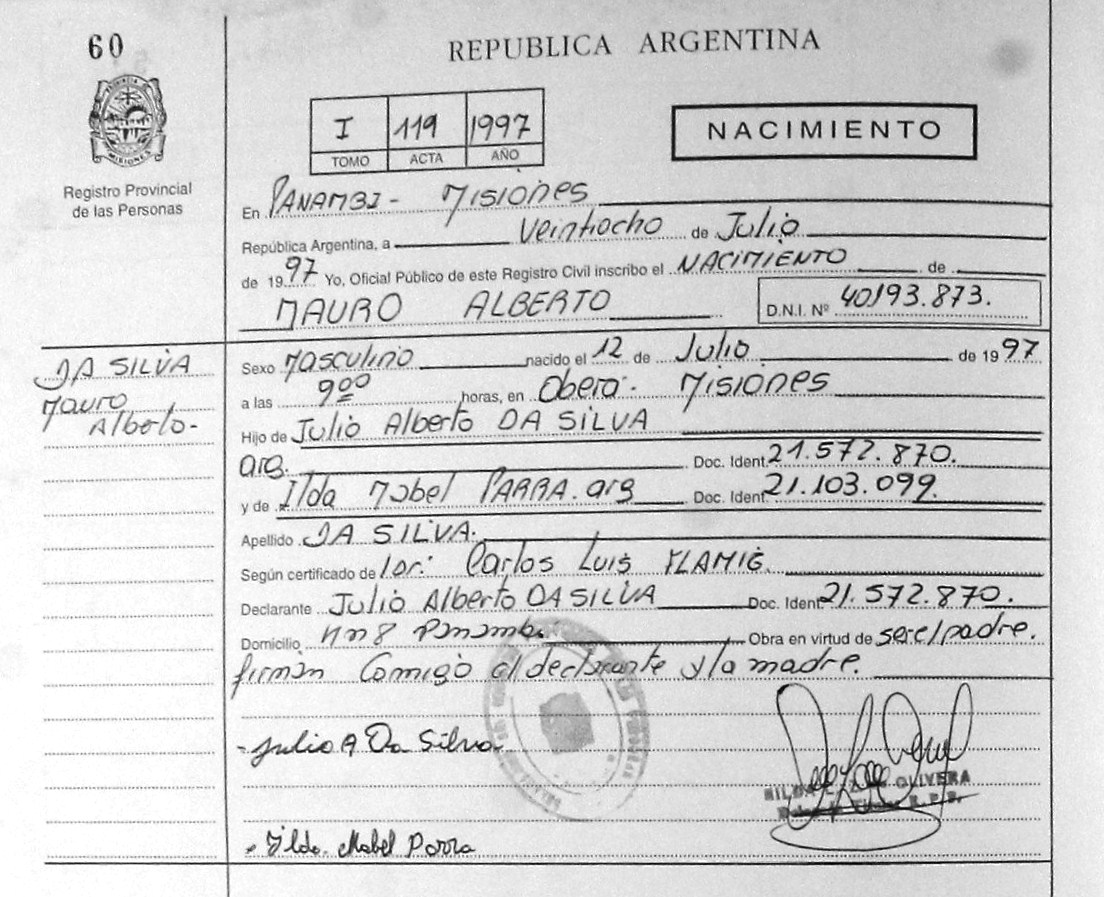 60
REPUBLICA ARGENTINA
I 119 1997
TOMO ACTA AÑO
NACIMIENTO
PROVINCIA MISIONES
Registro Provincial
de las Personas
En PANAMBI - MISIONES
República Argentina, a veintiocho de Julio
de 1997 Yo, Oficial Público de este Registro Civil inscribo el NACIMIENTO de
MAURO ALBERTO D.N.I. Nº 40193.873.
DA SILVA
Mauro
Alberto-
Sexo Masculino nacido el 12 de Julio de 1997
a las 9 00 horas, en Oberá - MISIONES
Hijo de Julio Alberto DA SILVA
arg. Doc. Ident. 21.572.870.
y de Ilda Mabel PARRA. arg Doc. Ident. 21.103.099.
Apellido DA SILVA.
Según certificado de Carlos Luis
Declarante Julio Alberto DA SILVA Doc. Ident. 21.572.870.
Domicilio Km 8 Panambi Obra en virtud de ser el padre.
firman Comigo el declarante y la madre.
- Julio A Da Silva
OLIVERA
Ilda. Mabel Parra